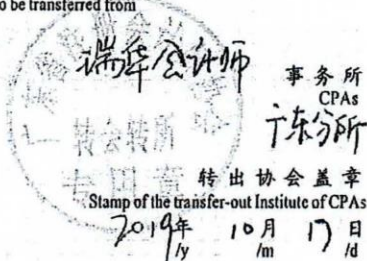 to be transferred from
瑞华会计师
事务所
CPAs
广东分所
转会转所
转出协会盖章
Stamp of the transfer-out Institute of CPAs
2019年 10月 17日
/y /m /d